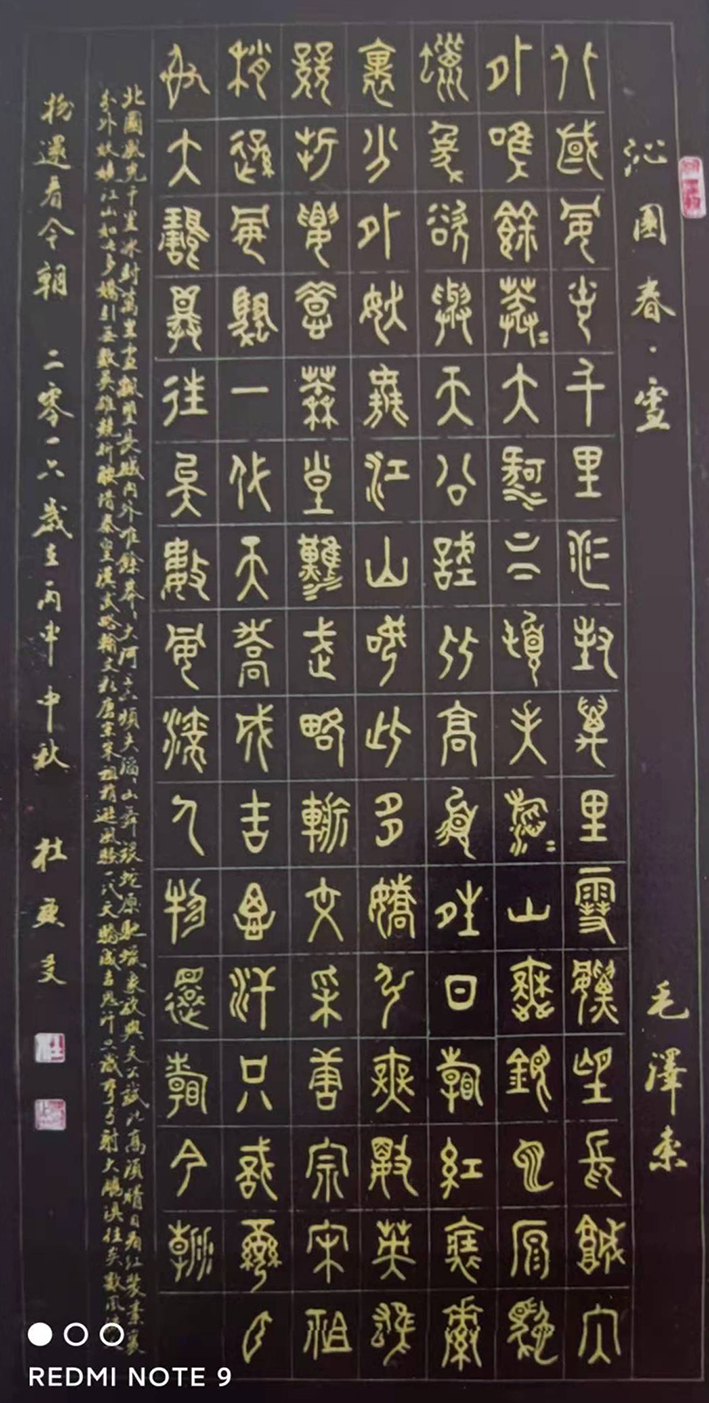 沁園春·雪 毛澤東
北國風光千里冰封萬里雪飄望長城内
外唯餘莽莽大河上下頓失滔滔山舞銀蛇原馳
蠟象欲與天公試比高須晴日看紅裝素
裹分外妖嬈江山如此多嬌引無數英雄
競折腰惜秦皇漢武略輸文采唐宗宋祖
稍遜風騷一代天驕成吉思汗只識彎弓
射大雕俱往矣數風流人物還看今朝
北國風光千里冰封萬里雪飄望長城内外惟餘莽莽大河上下頓失滔滔山舞銀蛇原馳蠟象欲與天公試比高須晴日看紅裝素裹
分外妖嬈江山如此多嬌引無數英雄競折腰惜秦皇漢武略輸文采唐宗宋祖稍遜風騷一代天驕成吉思汗只識彎弓射大雕俱往矣數風流人
物還看今朝 二零一六歲在丙申中秋 杜
REDMI NOTE 9